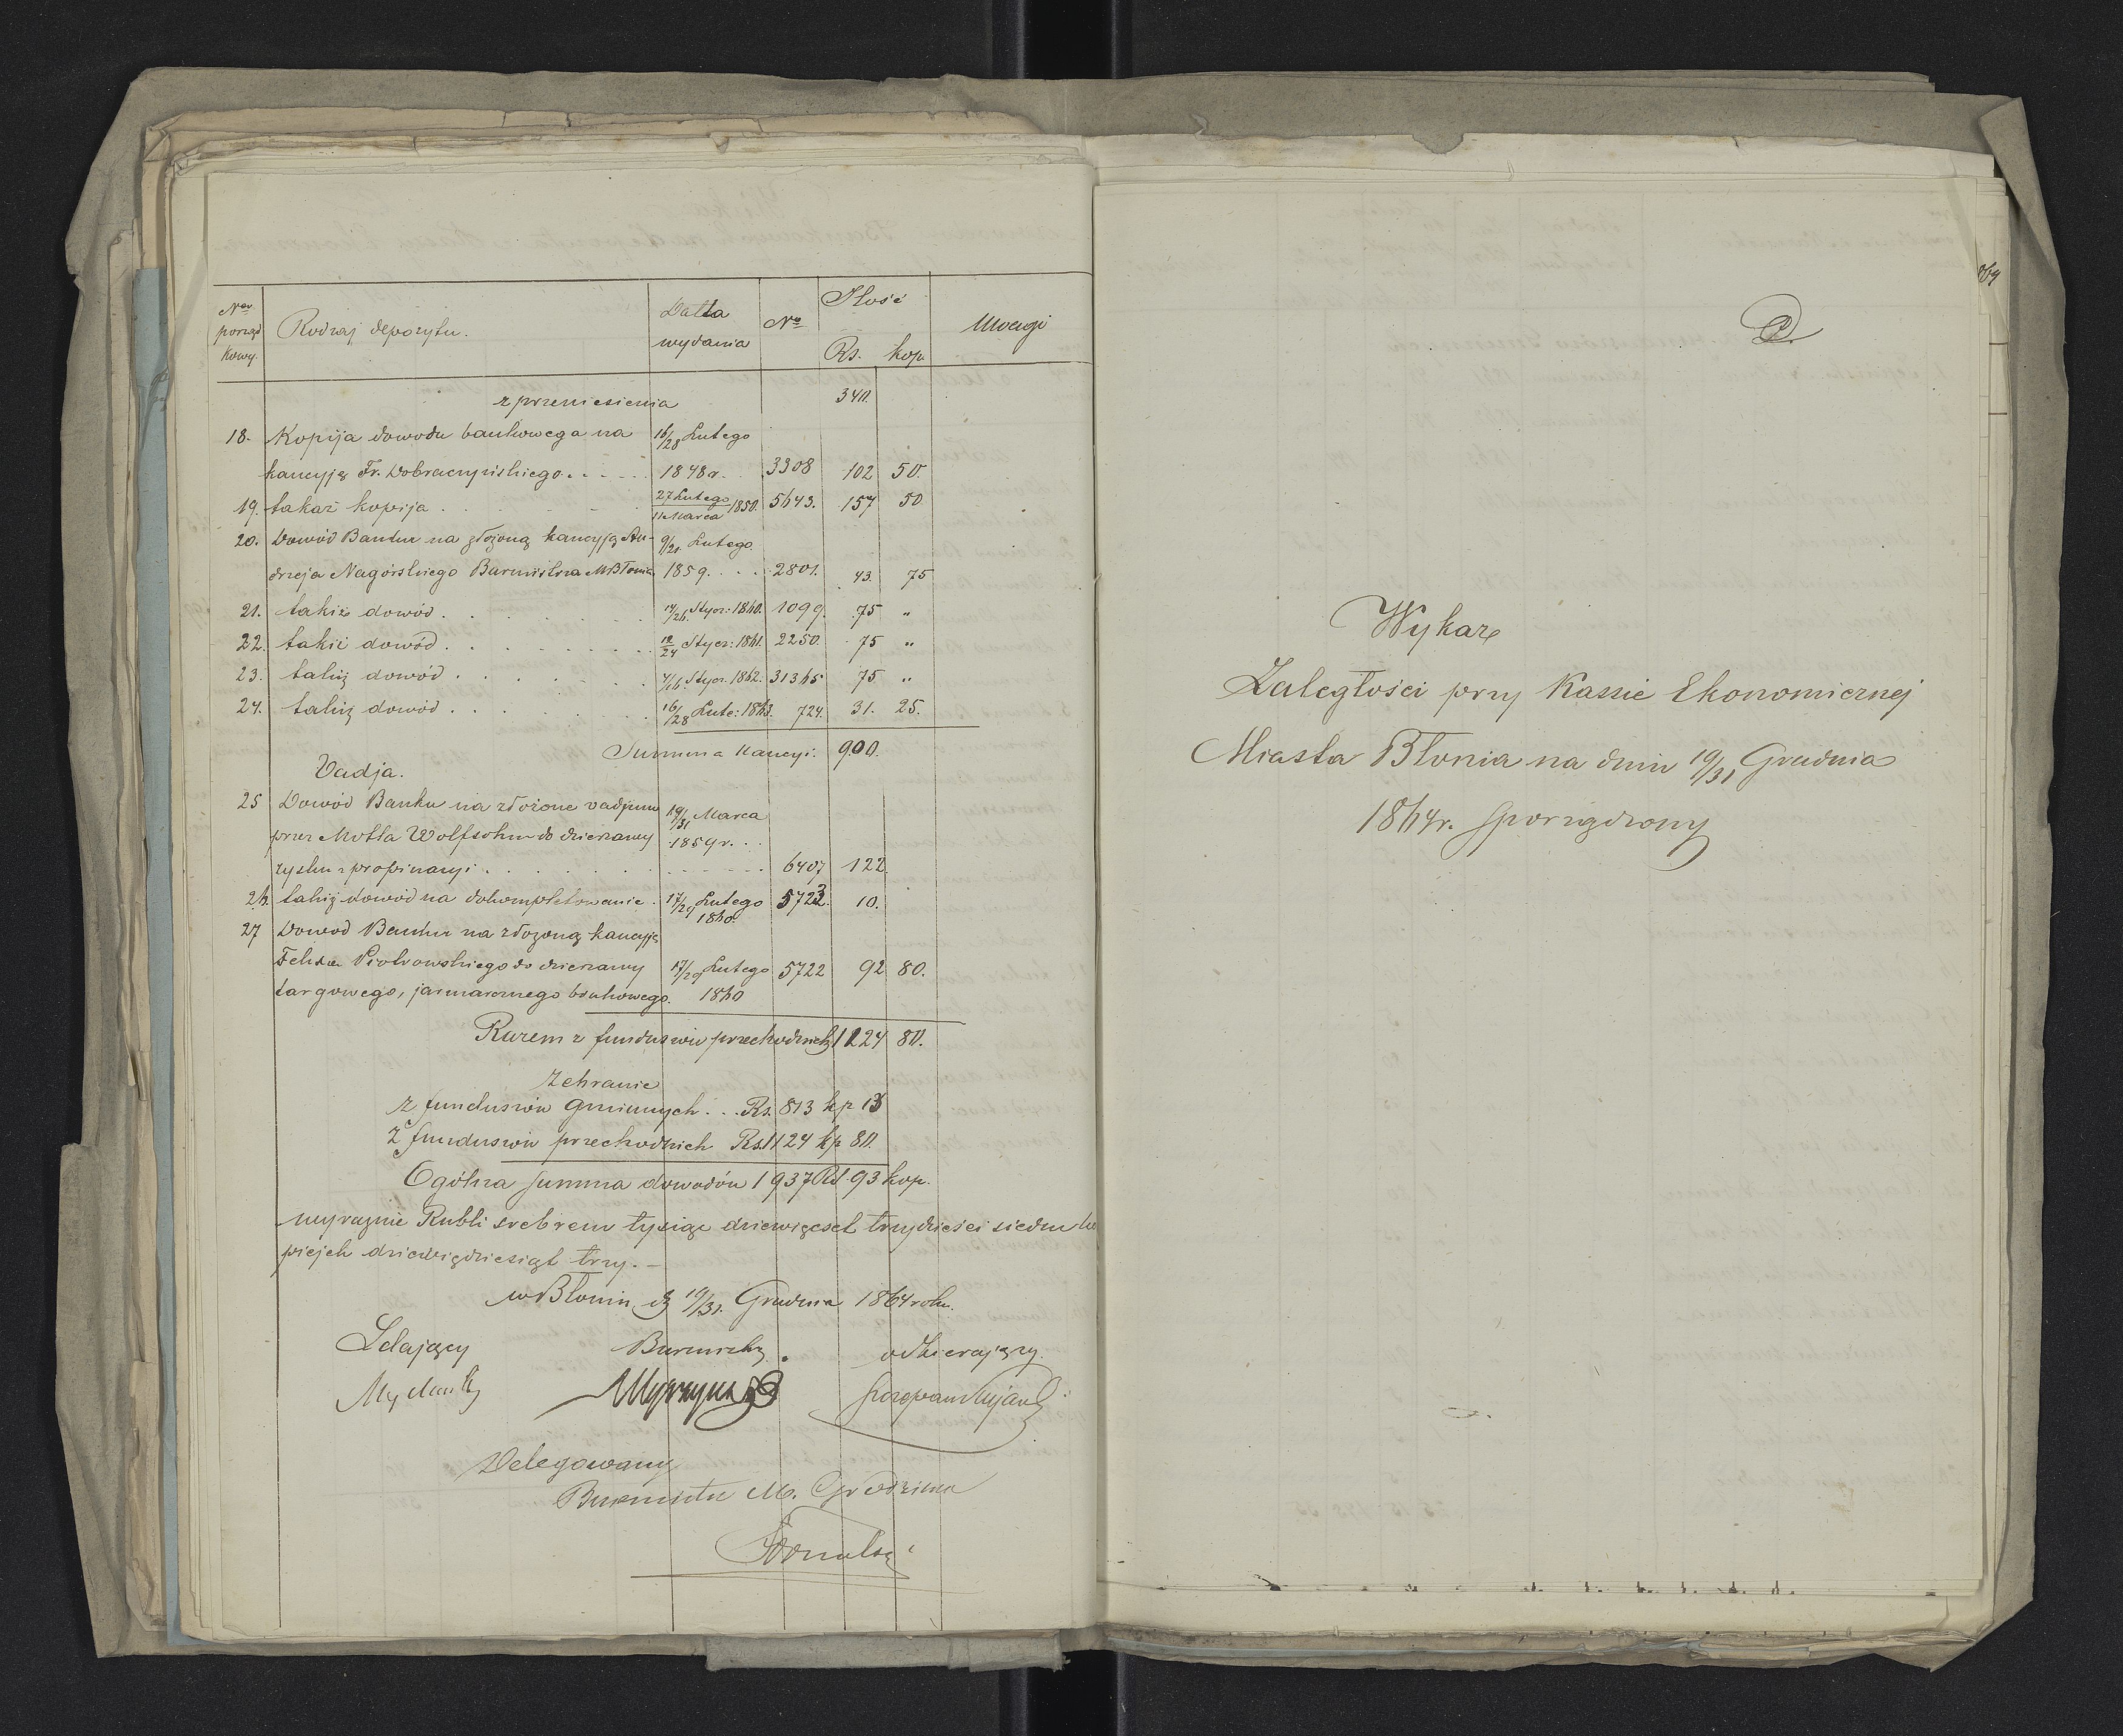 Ner porząd kowy. Rodzaj depozytu. Datta wydania No Ilość Rs. kop. Uwagi
z przeniesienia 340.
18. Kopija dowodu bankowego na 16/28 Lutego
kaucyją Fr. Dobraczyńskiego. . . . . 1848 r. . 3308 102 50.
19. takaż kopija . . . 27 Lutego/11 Marca 1850. 5643. 157 50
20. Dowód Banku na złożoną kaucyją An- 9/21 Lutego
drzeja Nagórskiego Burmistrza M Błonia 1859. . . . 2801. 43. 75
21. takiż dowód . . . 14/26 Stycz: 1860. 1099. 75 "
22. takiż dowód . . . 12/24 Stycz: 1861. 2250. 75 "
23. takiż dowód . . . 4/16 Stycz. 1862. 31365 75 "
24. takiż dowód . . . 16/28 Lute: 1863. 724. 31. 25.
Summa kaucyi. 900.
Vadja.
25 Dowód Banku na złożone vadjum 19/31 Marca
przez Motla Wolfsohn do dzierzawy 1859 r. . .
zysku z propinacyi . . . 6407 122.
26. takiż dowód na dokompletowanie . 17/29 Lutego 1860. 5723. 10.
27 Dowod Banku na złozoną kaucyją
Felixa Piotrowskiego do dzierzawy 17/29 Lutego 5722 92 80.
targowego, jarmarcznego brukowego. 1860
Razem z funduszów przechodnich 1124 80.
Zebranie
z funduszów gminnych . . . Rs. 813 kp 13
z funduszów przechodnich Rs. 1124 kp 80.
Ogólna summa dowodów 1937 Rs. 93 kop.
wyraznie Rubli srebrem tysiąc dziewięcset trzydzieści siedm ko
piejek dziewięćdziesiąt trzy. –
w Błoniu d 19/31. Grudnia 1864 roku.
Zdający Burmistrz. odbierający.
Delegowany
Burmistrz M. Grodziska
D.
Wykaz
Zaległości przy Kassie Ekonomicznej
Miasta Błonia na dniu 19/31 Grudnia
1864 r. sporządzony